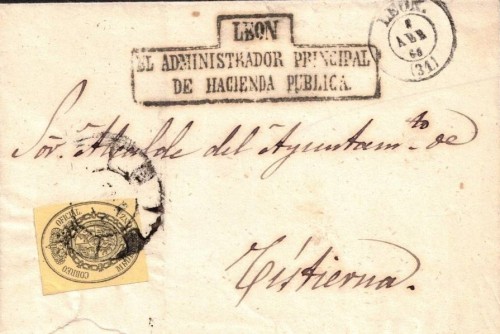 LEON
EL ADMINISTRADOR PRINCIPAL
DE HACIENDA PUBLICA.
LEON.
ABR
(31)
Sor. Alcalde del Ayuntam.to de
Cistierna.
CORREO OFICIAL